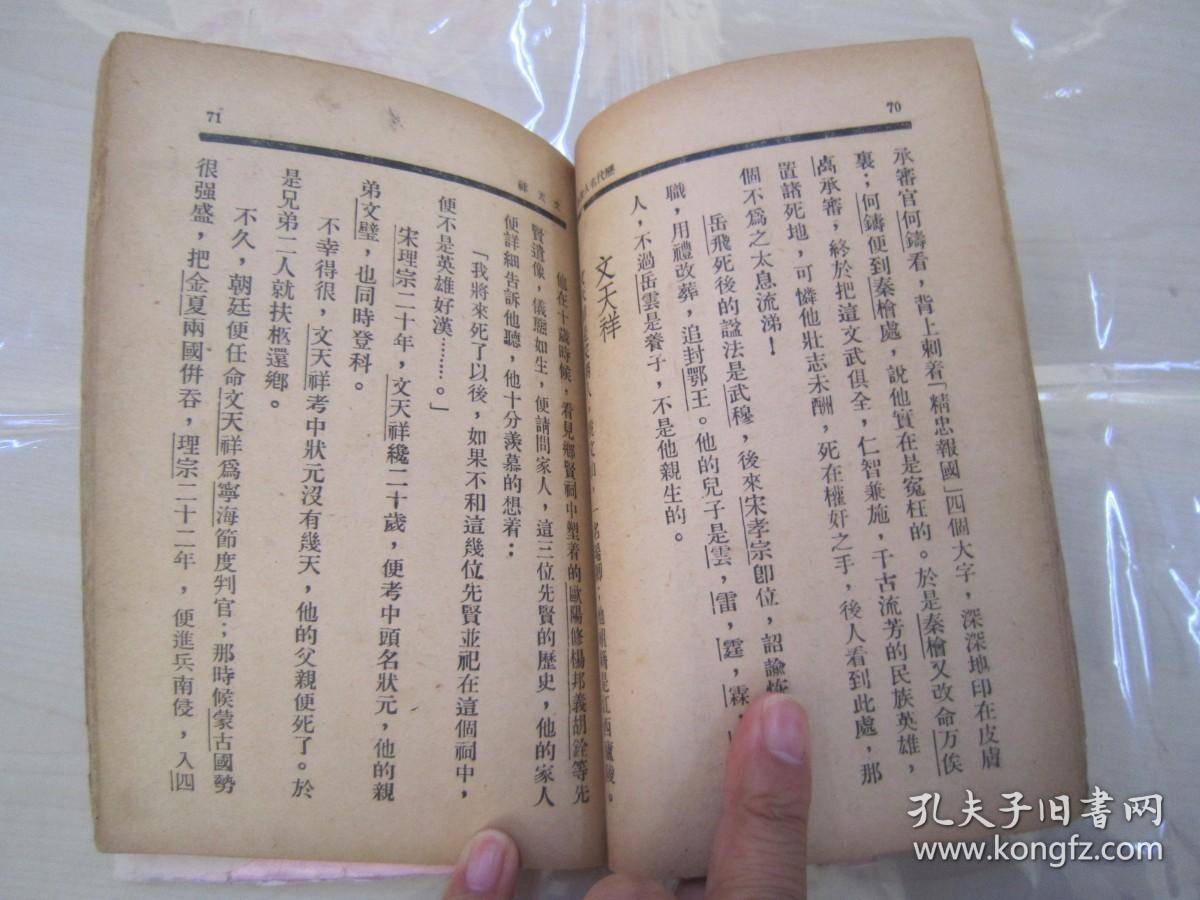 70
承審官何鑄看，背上刺着「精忠報國」四個大字，深深地印在皮膚
裏；何鑄便到秦檜處，說他實在是寃枉的。於是秦檜又改命万俟
卨承審，終於把這文武俱全，仁智兼施，千古流芳的民族英雄，
置諸死地，可憐他壯志未酬，死在權奸之手，後人看到此處，那
個不爲之太息流涕！
岳飛死後的諡法是武穆，後來宋孝宗卽位，詔諭
職，用禮改葬，追封鄂王。他的兒子是雲，雷，霆，霖，
人，不過岳雲是養子，不是他親生的。
文天祥
歷代名人
71
文天祥
是江西廬陵。
他在十歲時候，看見鄉賢祠中塑着的歐陽修楊邦義胡銓等先
賢遺像，儀態如生，便請問家人，這三位先賢的歷史，他的家人
便詳細告訴他聽，他十分羨慕的想着：
「我將來死了以後，如果不和這幾位先賢並祀在這個祠中，
便不是英雄好漢………。」
宋理宗二十年，文天祥纔二十歲，便考中頭名狀元，他的親
弟文璧，也同時登科。
不幸得很，文天祥考中狀元沒有幾天，他的父親便死了。於
是兄弟二人就扶柩還鄉。
不久，朝廷便任命文天祥爲寧海節度判官；那時候蒙古國勢
很强盛，把金夏兩國併吞，理宗二十二年，便進兵南侵，入四
孔夫子旧书网
www.kongfz.com